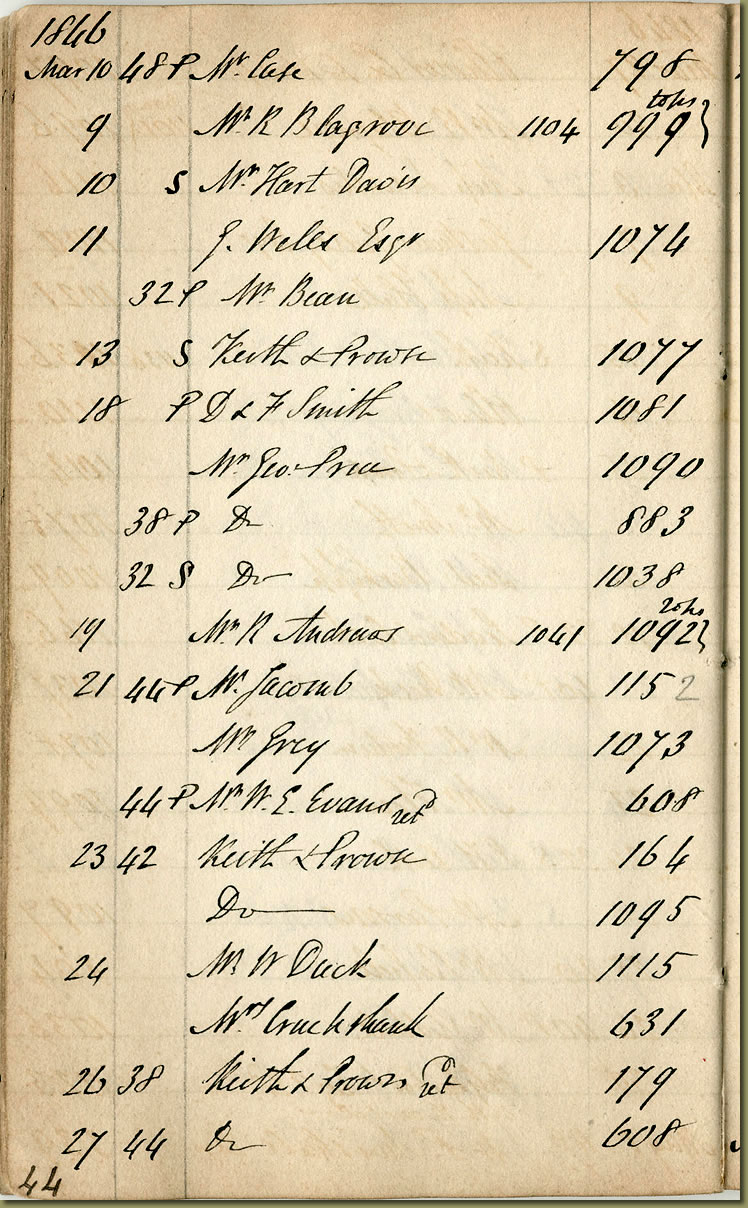 1846
Mar 10 48 P Mr Case 798
9 Mr R Blagrove 1104 999}
10 S Mr Hart Davis
11 J. Wells Esqr 1074
32 P Mr Bean
13 S Keith & Prowse 1077
18 P D & F Smith 1081
Mr Geo. Price 1090
38 P Do 883
32 S Do 1038
19 Mr R Andrews 1041 1092}
21 44 P Mr Jacomb 1152
Mr Grey 1073
44 P Mr W. E. Evans retd 608
23 42 Keith & Prowse 164
Do 1095
24 Mr W Duck 1115
Mrs Cruckshank 631
26 38 Keith & Prowse retd 179
27 44 Do 608
44